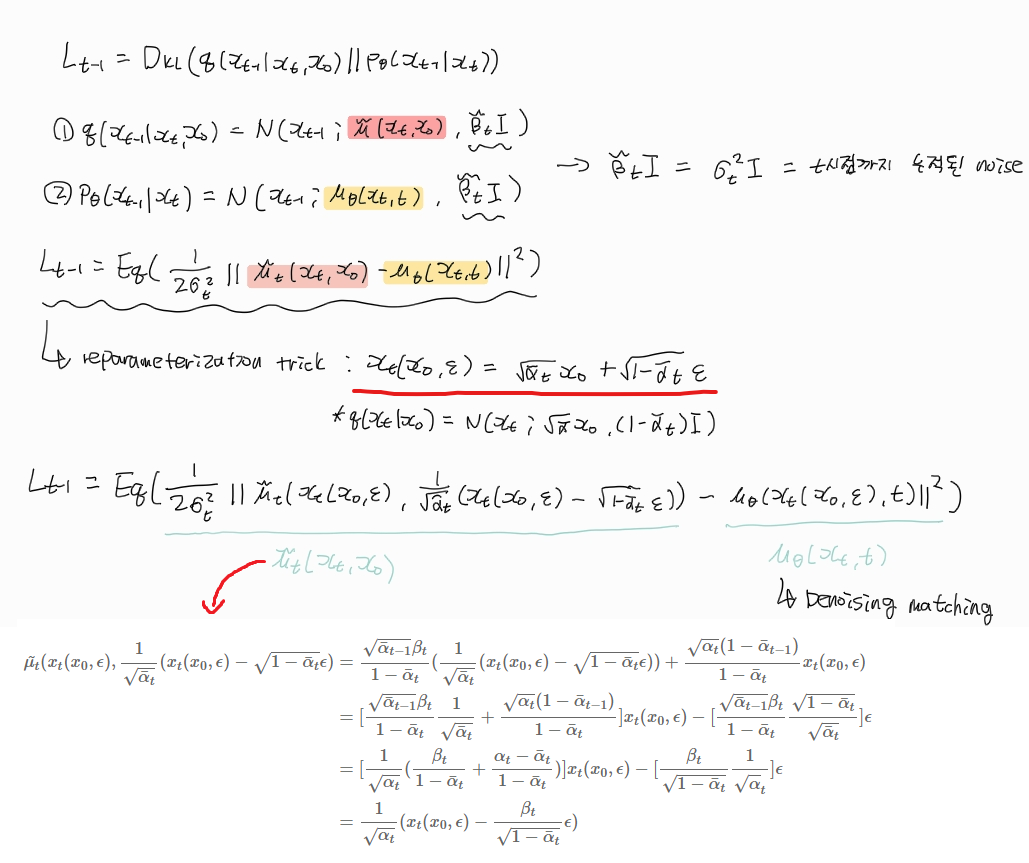 L_{t-1} = D_{KL}(q(x_{t-1}|x_t,x_0)||p_θ(x_{t-1}|x_t))
① q(x_{t-1}|x_t,x_0) = N(x_{t-1}; μ̃(x_t,x_0), β̃_t I)
→ β̃_t I = σ_t^2 I = t시점까지 누적된 noise
② p_θ(x_{t-1}|x_t) = N(x_{t-1}; μ_θ(x_t,t), β̃_t I)
L_{t-1} = E_q(\frac{1}{2σ_t^2} ||μ̃_t(x_t,x_0) - μ_θ(x_t,t)||^2)
↳ reparameterization trick : x_t(x_0,ε) = √ᾱ_t x_0 + √(1-ᾱ_t) ε
* q(x_t|x_0) = N(x_t; √ᾱ x_0, (1-ᾱ_t)I)
L_{t-1} = E_q(\frac{1}{2σ_t^2} ||μ̃_t(x_t(x_0,ε), \frac{1}{√ᾱ_t}(x_t(x_0,ε) - √(1-ᾱ_t) ε)) - μ_θ(x_t(x_0,ε),t)||^2)
μ̃_t(x_t,x_0) μ_θ(x_t,t)
↳ Denoising matching
μ̃_t(x_t(x_0,ϵ), \frac{1}{√ᾱ_t}(x_t(x_0,ϵ) - √(1-ᾱ_t)ϵ) = \frac{√ᾱ_{t-1}β_t}{1-ᾱ_t}(\frac{1}{√ᾱ_t}(x_t(x_0,ϵ) - √(1-ᾱ_t)ϵ)) + \frac{√α_t(1-ᾱ_{t-1})}{1-ᾱ_t}x_t(x_0,ϵ)
= [\frac{√ᾱ_{t-1}β_t}{1-ᾱ_t}\frac{1}{√ᾱ_t} + \frac{√α_t(1-ᾱ_{t-1})}{1-ᾱ_t}]x_t(x_0,ϵ) - [\frac{√ᾱ_{t-1}β_t}{1-ᾱ_t}\frac{√(1-ᾱ_t)}{√ᾱ_t}]ϵ
= [\frac{1}{√α_t}(\frac{β_t}{1-ᾱ_t} + \frac{α_t-ᾱ_t}{1-ᾱ_t})]x_t(x_0,ϵ) - [\frac{β_t}{√(1-ᾱ_t)}\frac{1}{√α_t}]ϵ
= \frac{1}{√α_t}(x_t(x_0,ϵ) - \frac{β_t}{√(1-ᾱ_t)}ϵ)